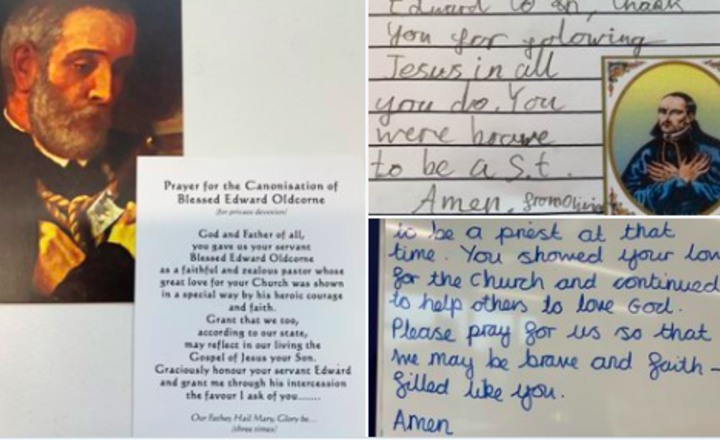 Prayer for the Canonisation of
Blessed Edward Oldcorne
(for private devotion)
God and Father of all,
you gave us your servant
Blessed Edward Oldcorne
as a faithful and zealous pastor whose
great love for your Church was shown
in a special way by his heroic courage
and faith.
Grant that we too,
according to our state,
may reflect in our living the
Gospel of Jesus your Son.
Graciously honour your servant Edward
and grant me through his intercession
the favour I ask of you.......
Our Father, Hail Mary, Glory be...
(three times)
Edward to sh, thank
You for folowing
Jesus in all
you do. You
were brave
to be a S.t.
Amen. from Olivia
to be a priest at that
time. You showed your lov
for the Church and continued
to help others to love God.
Please pray for us so that
we may be brave and faith-
filled like you.
Amen